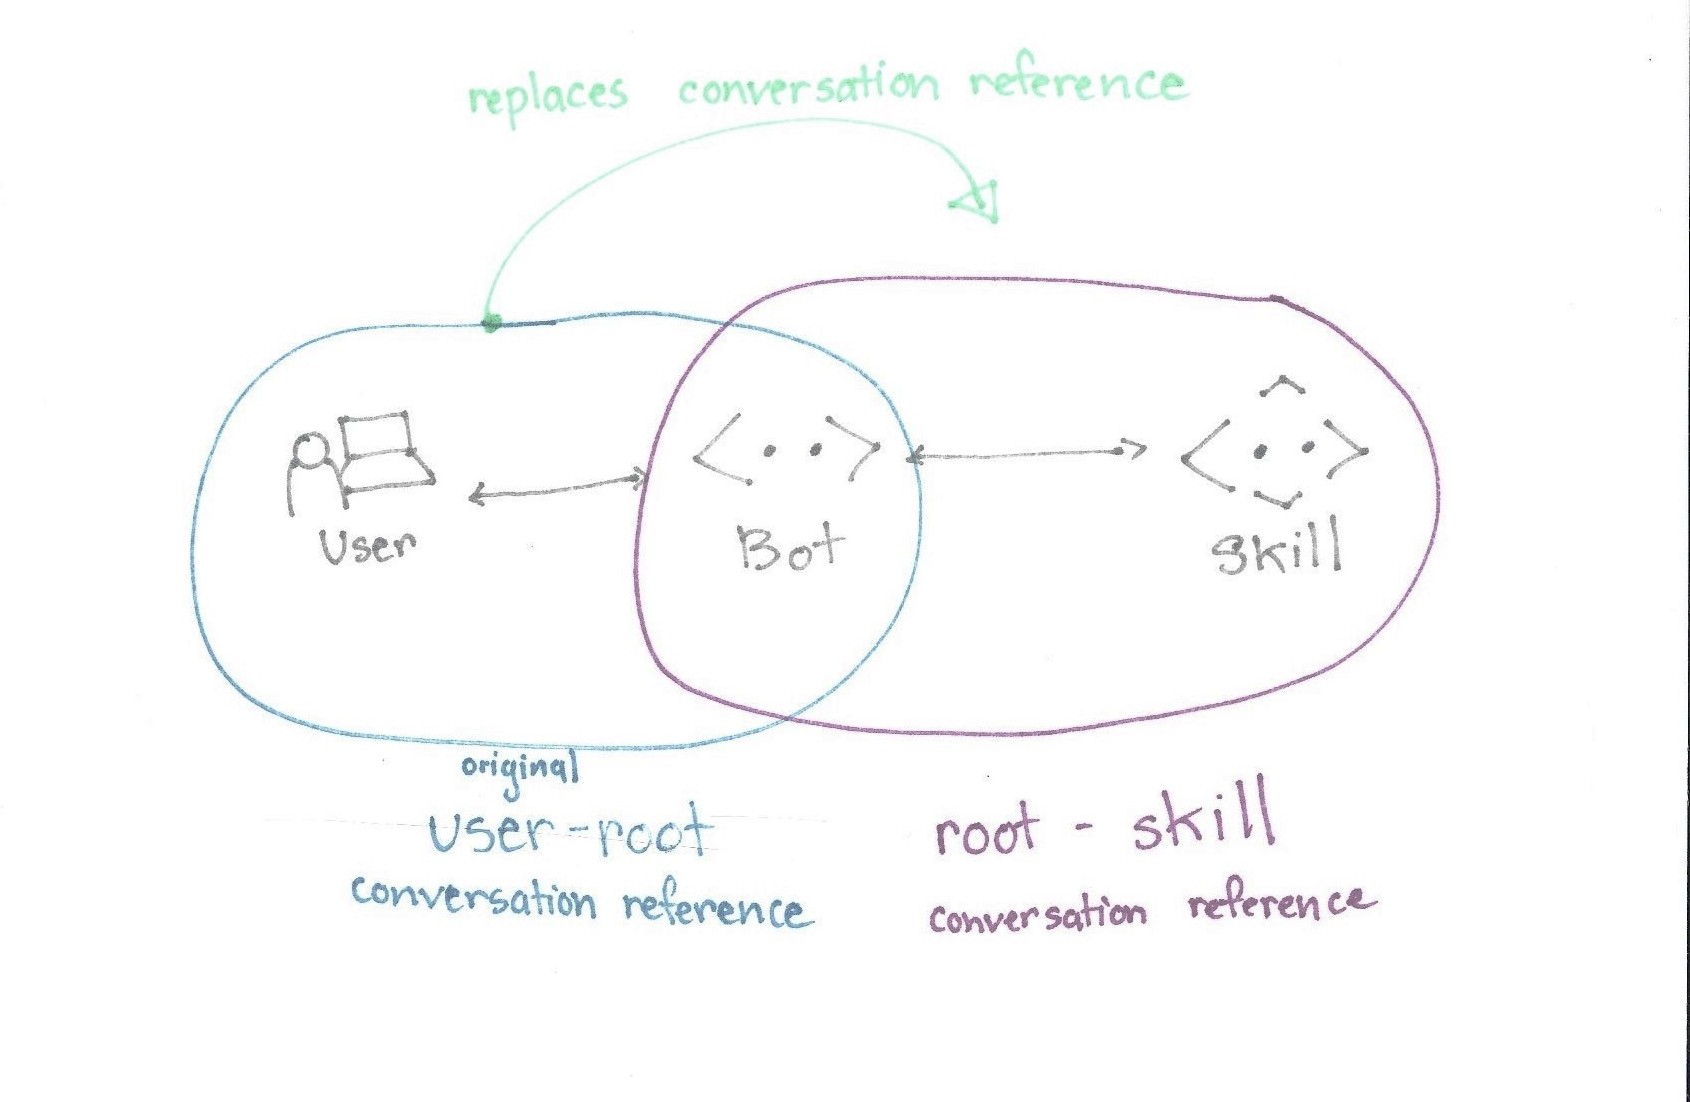 replaces conversation reference
User
Bot
Skill
original
user-root
conversation reference
root - skill
conversation reference